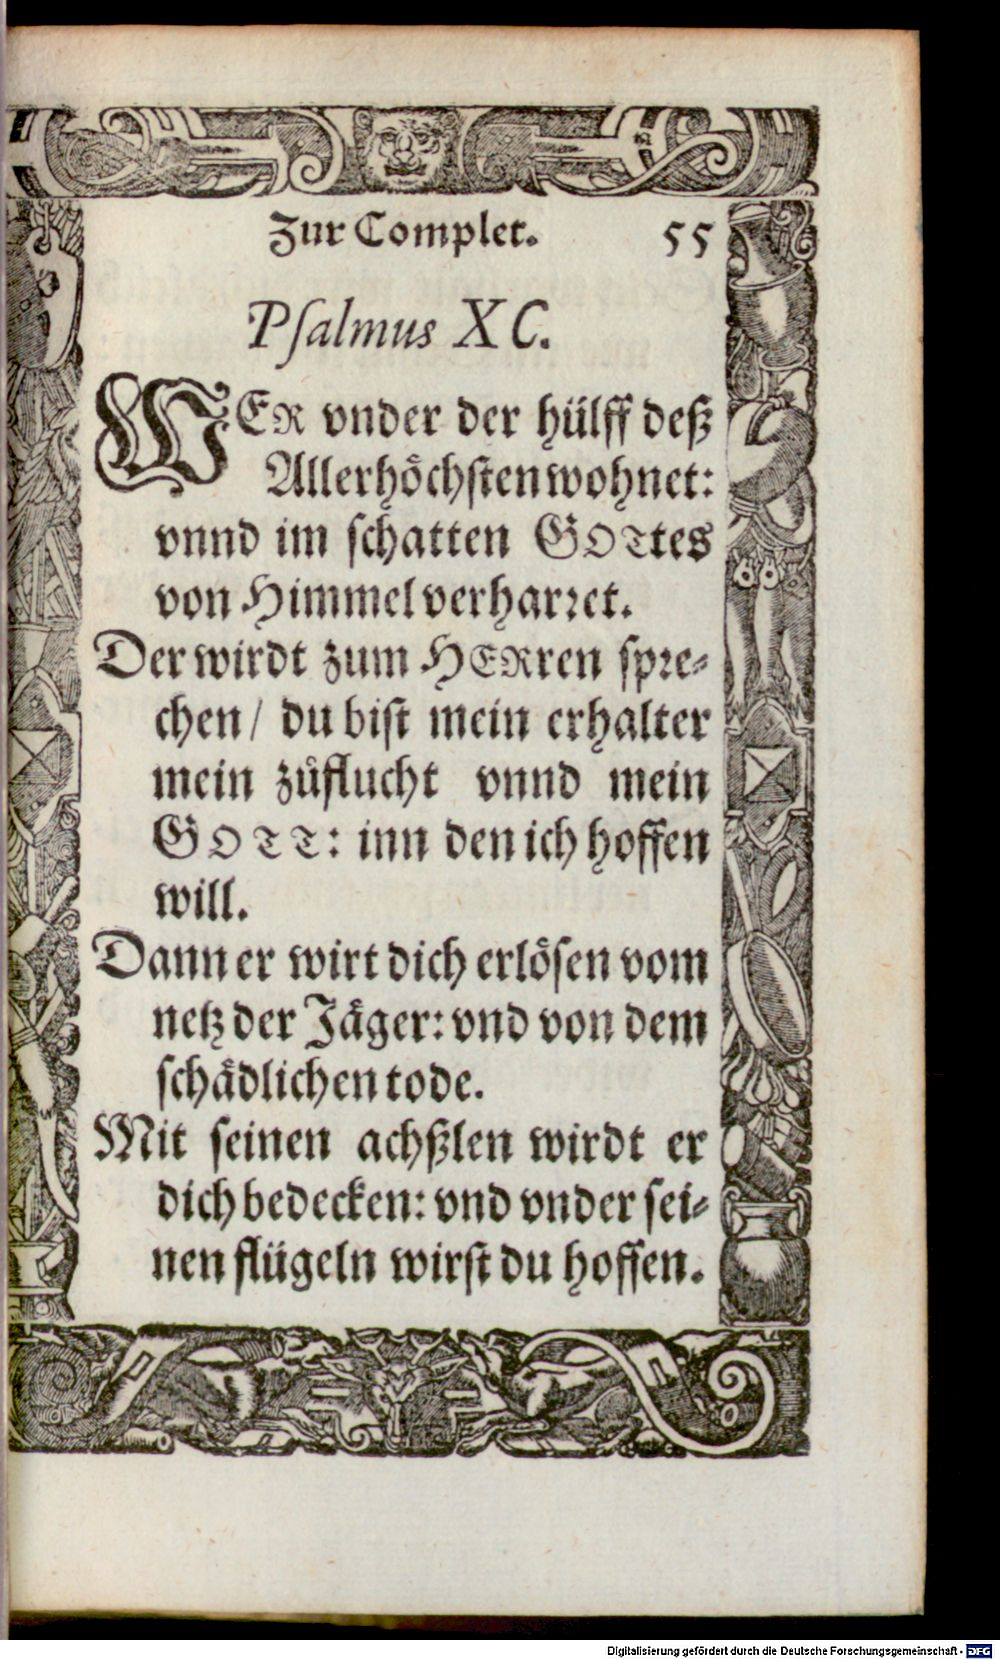 Zur Complet. 55
Pſalmus XC.
WER vnder der hülff deß
Allerhöchſten wohnet:
vnnd im ſchatten GOTtes
von Himmel verharꝛet.
Der wirdt zum HERren ſpꝛe⸗
chen / du biſt mein erhalter
mein zůflucht vnnd mein
GOTT: inn den ich hoffen
will.
Dann er wirt dich erlöſen vom
netz der Jäger: vnd von dem
ſchädlichen tode.
Mit ſeinen achßlen wirdt er
dich bedecken: vnd vnder ſei⸗
nen flügeln wirſt du hoffen.
Digitalisierung gefördert durch die Deutsche Forschungsgemeinschaft - DFG